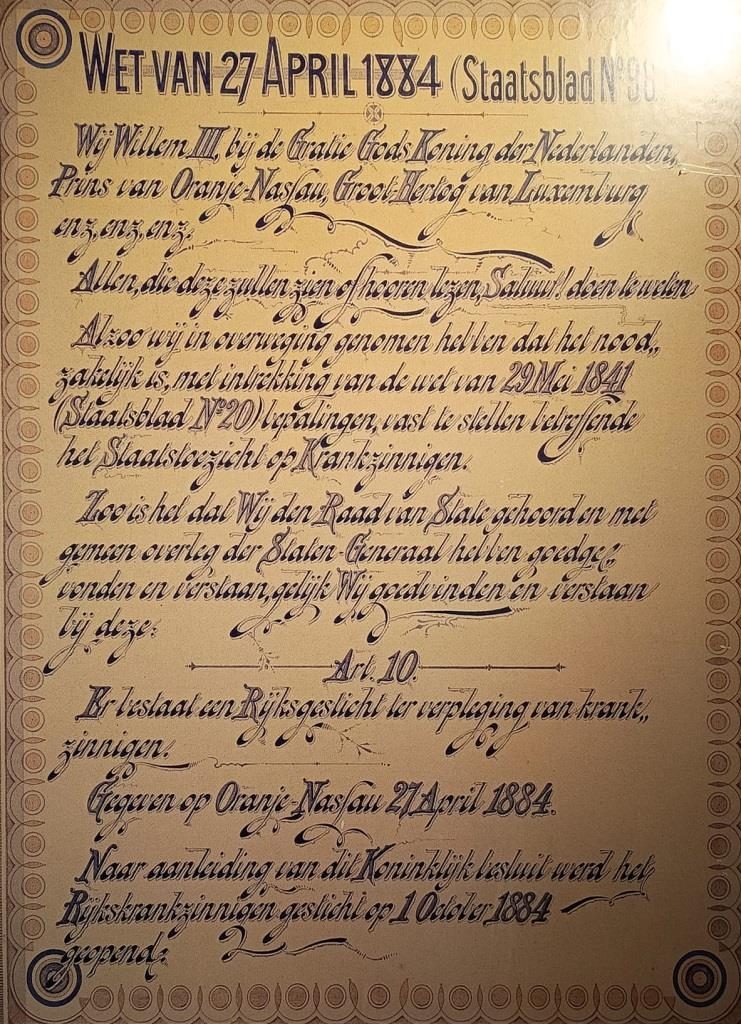 WET VAN 27 APRIL 1884 (Staatsblad Nº 96
Wij Willem III, bij de Gratie Gods Koning der Nederlanden,
Prins van Oranje-Nassau, Groot-Hertog van Luxemburg
enz, enz, enz.
Allen, die deze zullen zien of hooren lezen, Saluut! doen te weten
Alzoo wij in overweging genomen hebben dat het nood„
zakelijk is, met intrekking van de wet van 29 Mei 1841
(Staatsblad Nº 20) bepalingen, vast te stellen betreffende
het Staatstoezicht op Krankzinnigen.
Zoo is het dat Wij den Raad van State gehoord en met
gemeen overleg der Staten-Generaal hebben goedge„
vonden en verstaan, gelijk Wij goedvinden en verstaan
bij deze:
Art. 10.
Er bestaat een Rijksgesticht ter verpleging van krank„
zinnigen.
Gegeven op Oranje-Nassau 27 April 1884.
Naar aanleiding van dit Koninklijk besluit werd het
Rijkskrankzinnigen gesticht op 1 October 1884
geopend.